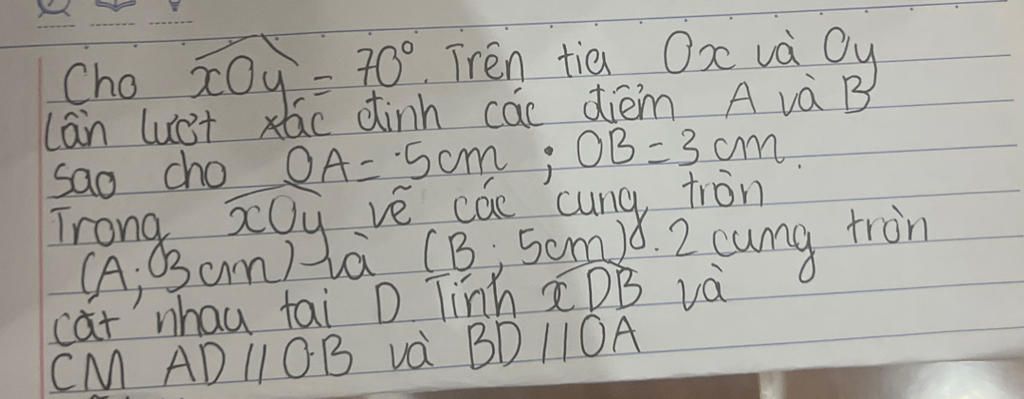 Cho xOy = 70°. Trên tia Ox và Oy
lần lượt xác định các điểm A và B
sao cho OA = 5cm ; OB = 3 cm.
Trong xOy vẽ các cung tròn
(A; 3cm) và (B; 5cm). 2 cung tròn
cắt nhau tại D. Tính xDB và
CM AD // OB và BD // OA